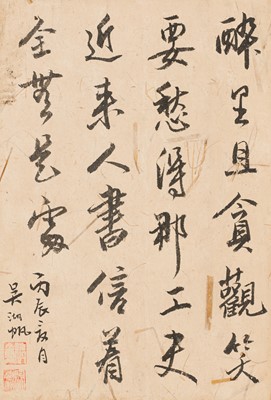 醉里且貪觀笑
要愁得那工夫
近来人書信着
全無是處
丙辰二月
吳湖帆